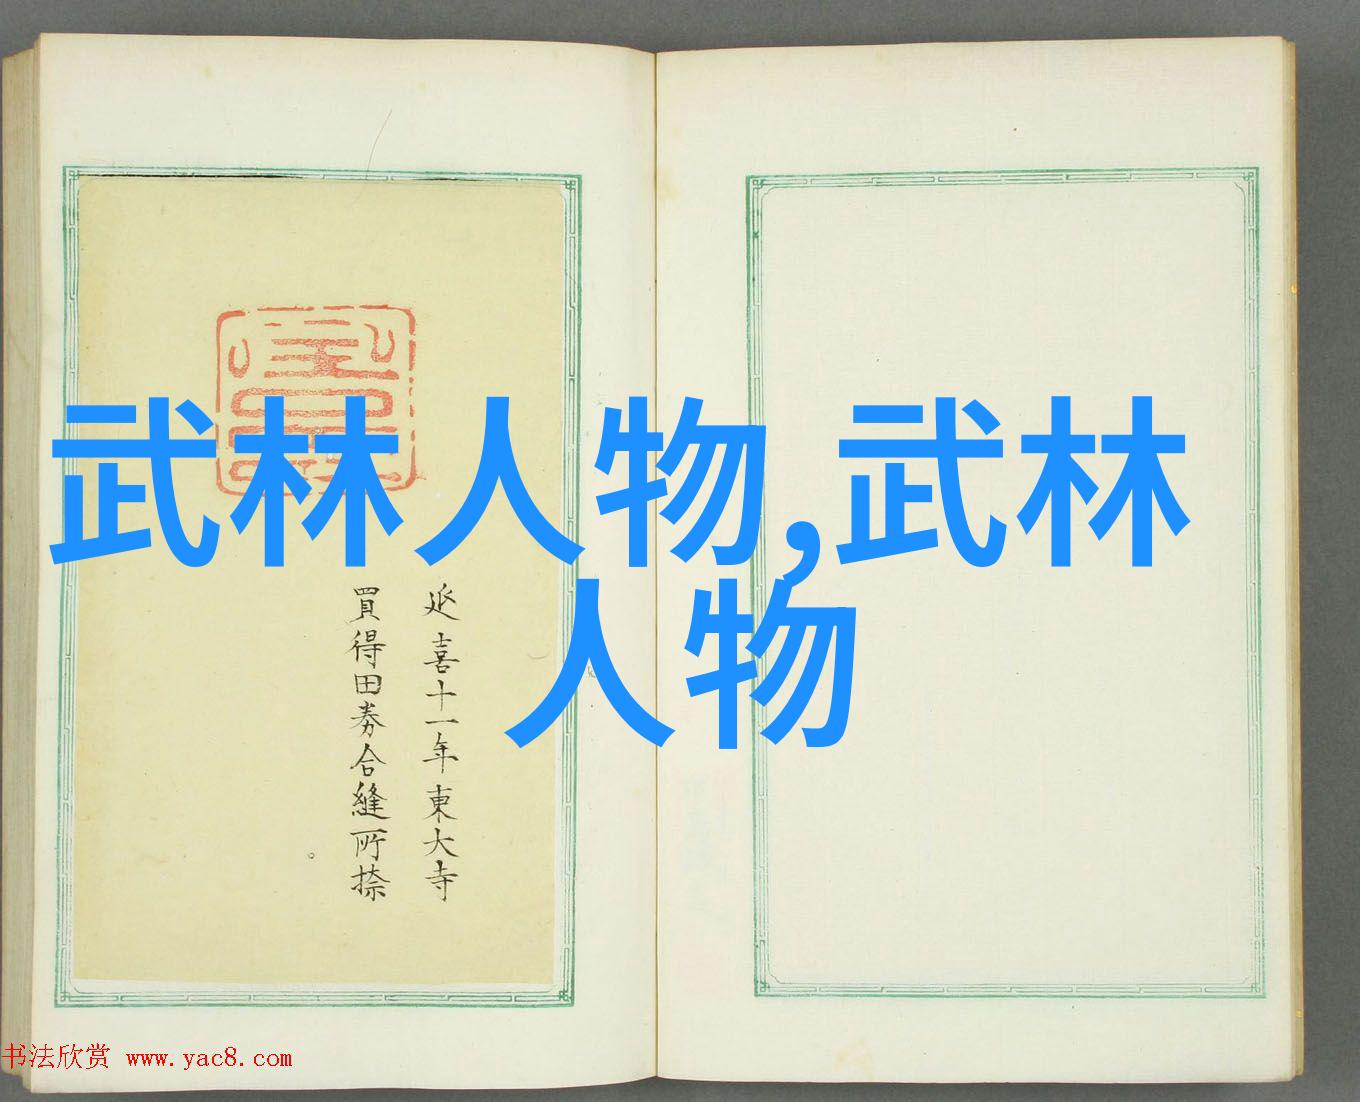 武林人物,武林
人物
延喜十一年東大寺
買得田券合縫所捺
书法欣赏 www.yac8.com